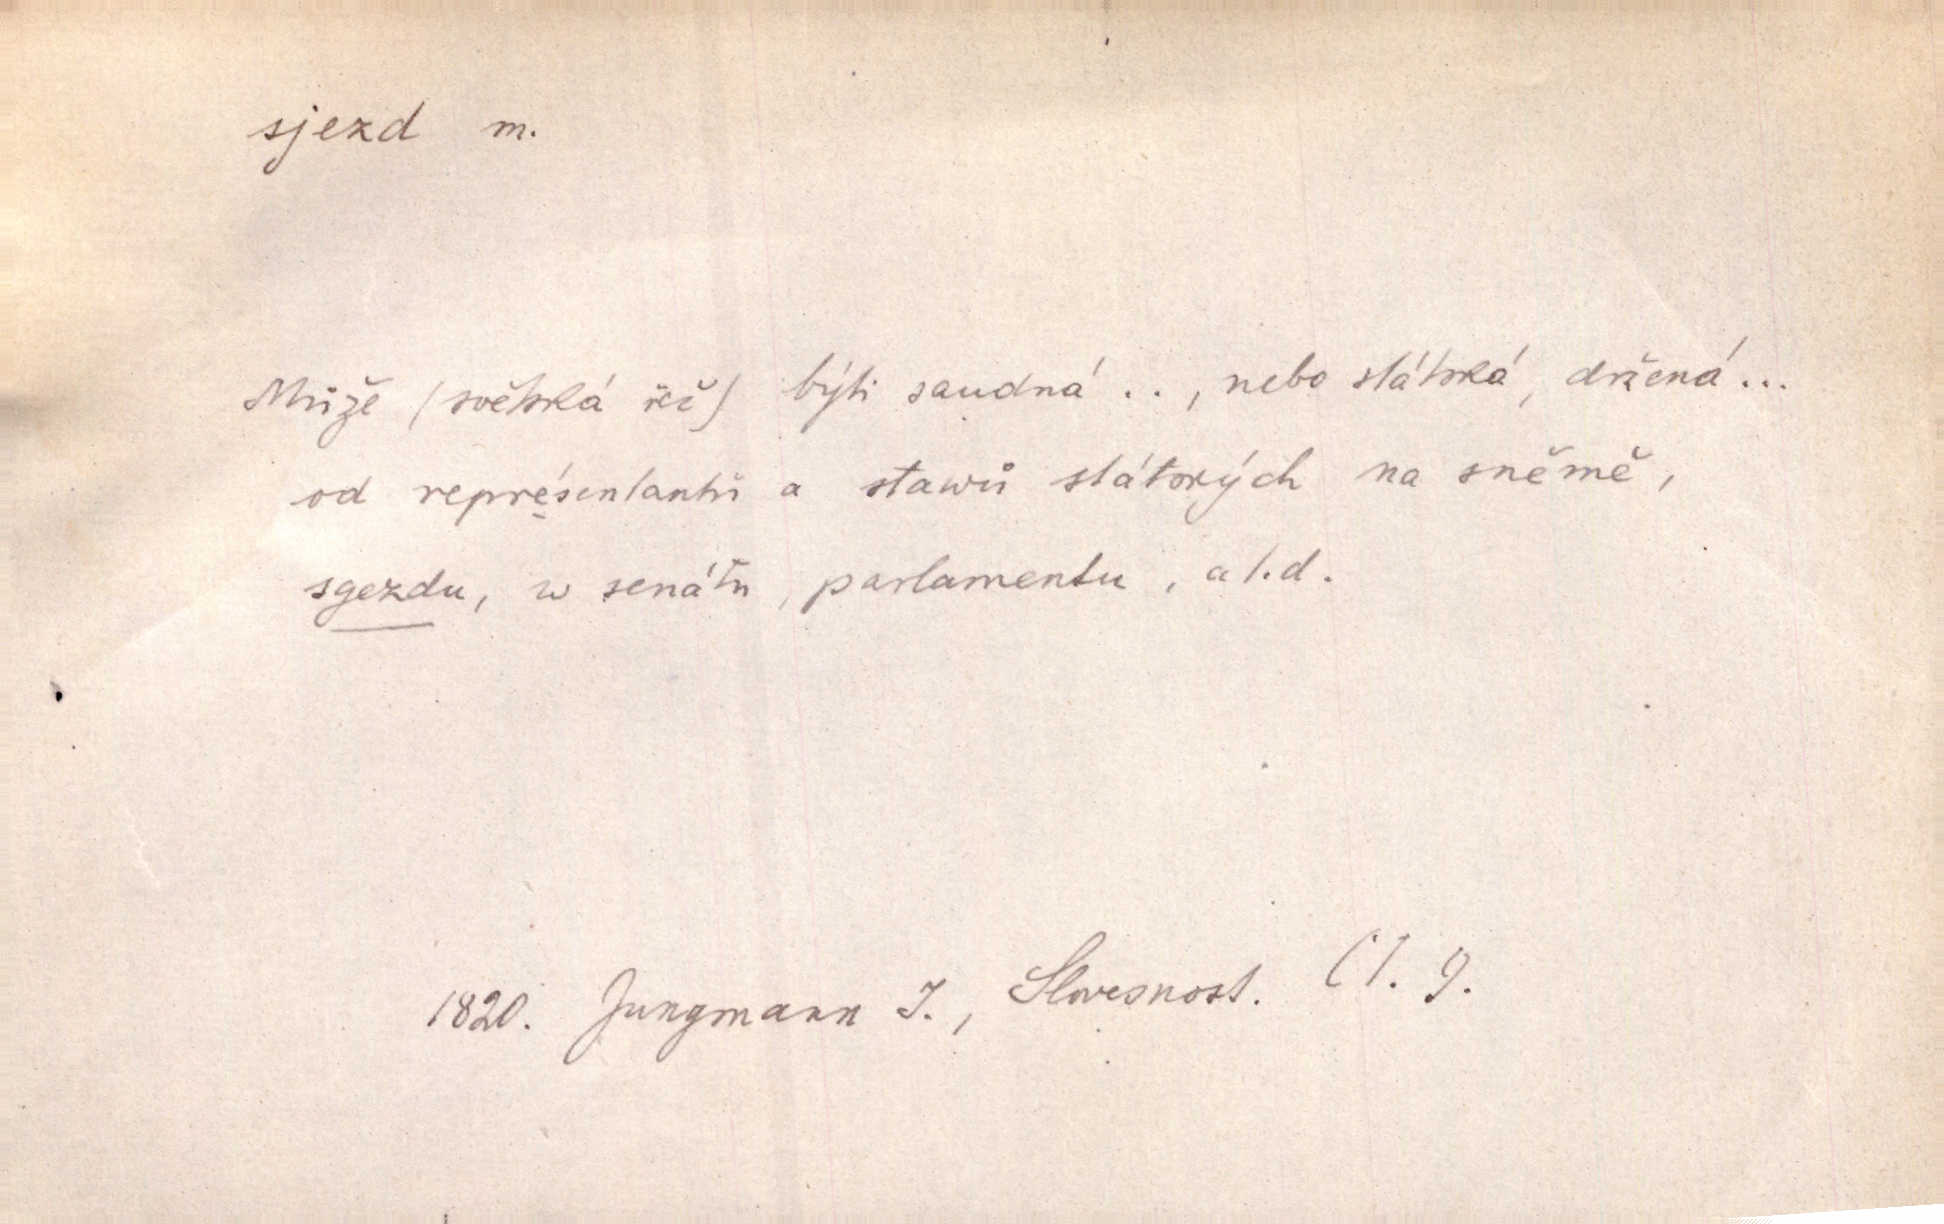 sjezd m.
Může (světská řeč) býti saudná . . , nebo státská, držená ...
od representantů a stawů státských na sněmě,
sgezdu, w senátu, parlamentu, a t. d.
1820. Jungmann J., Slovesnost. CI. 9.